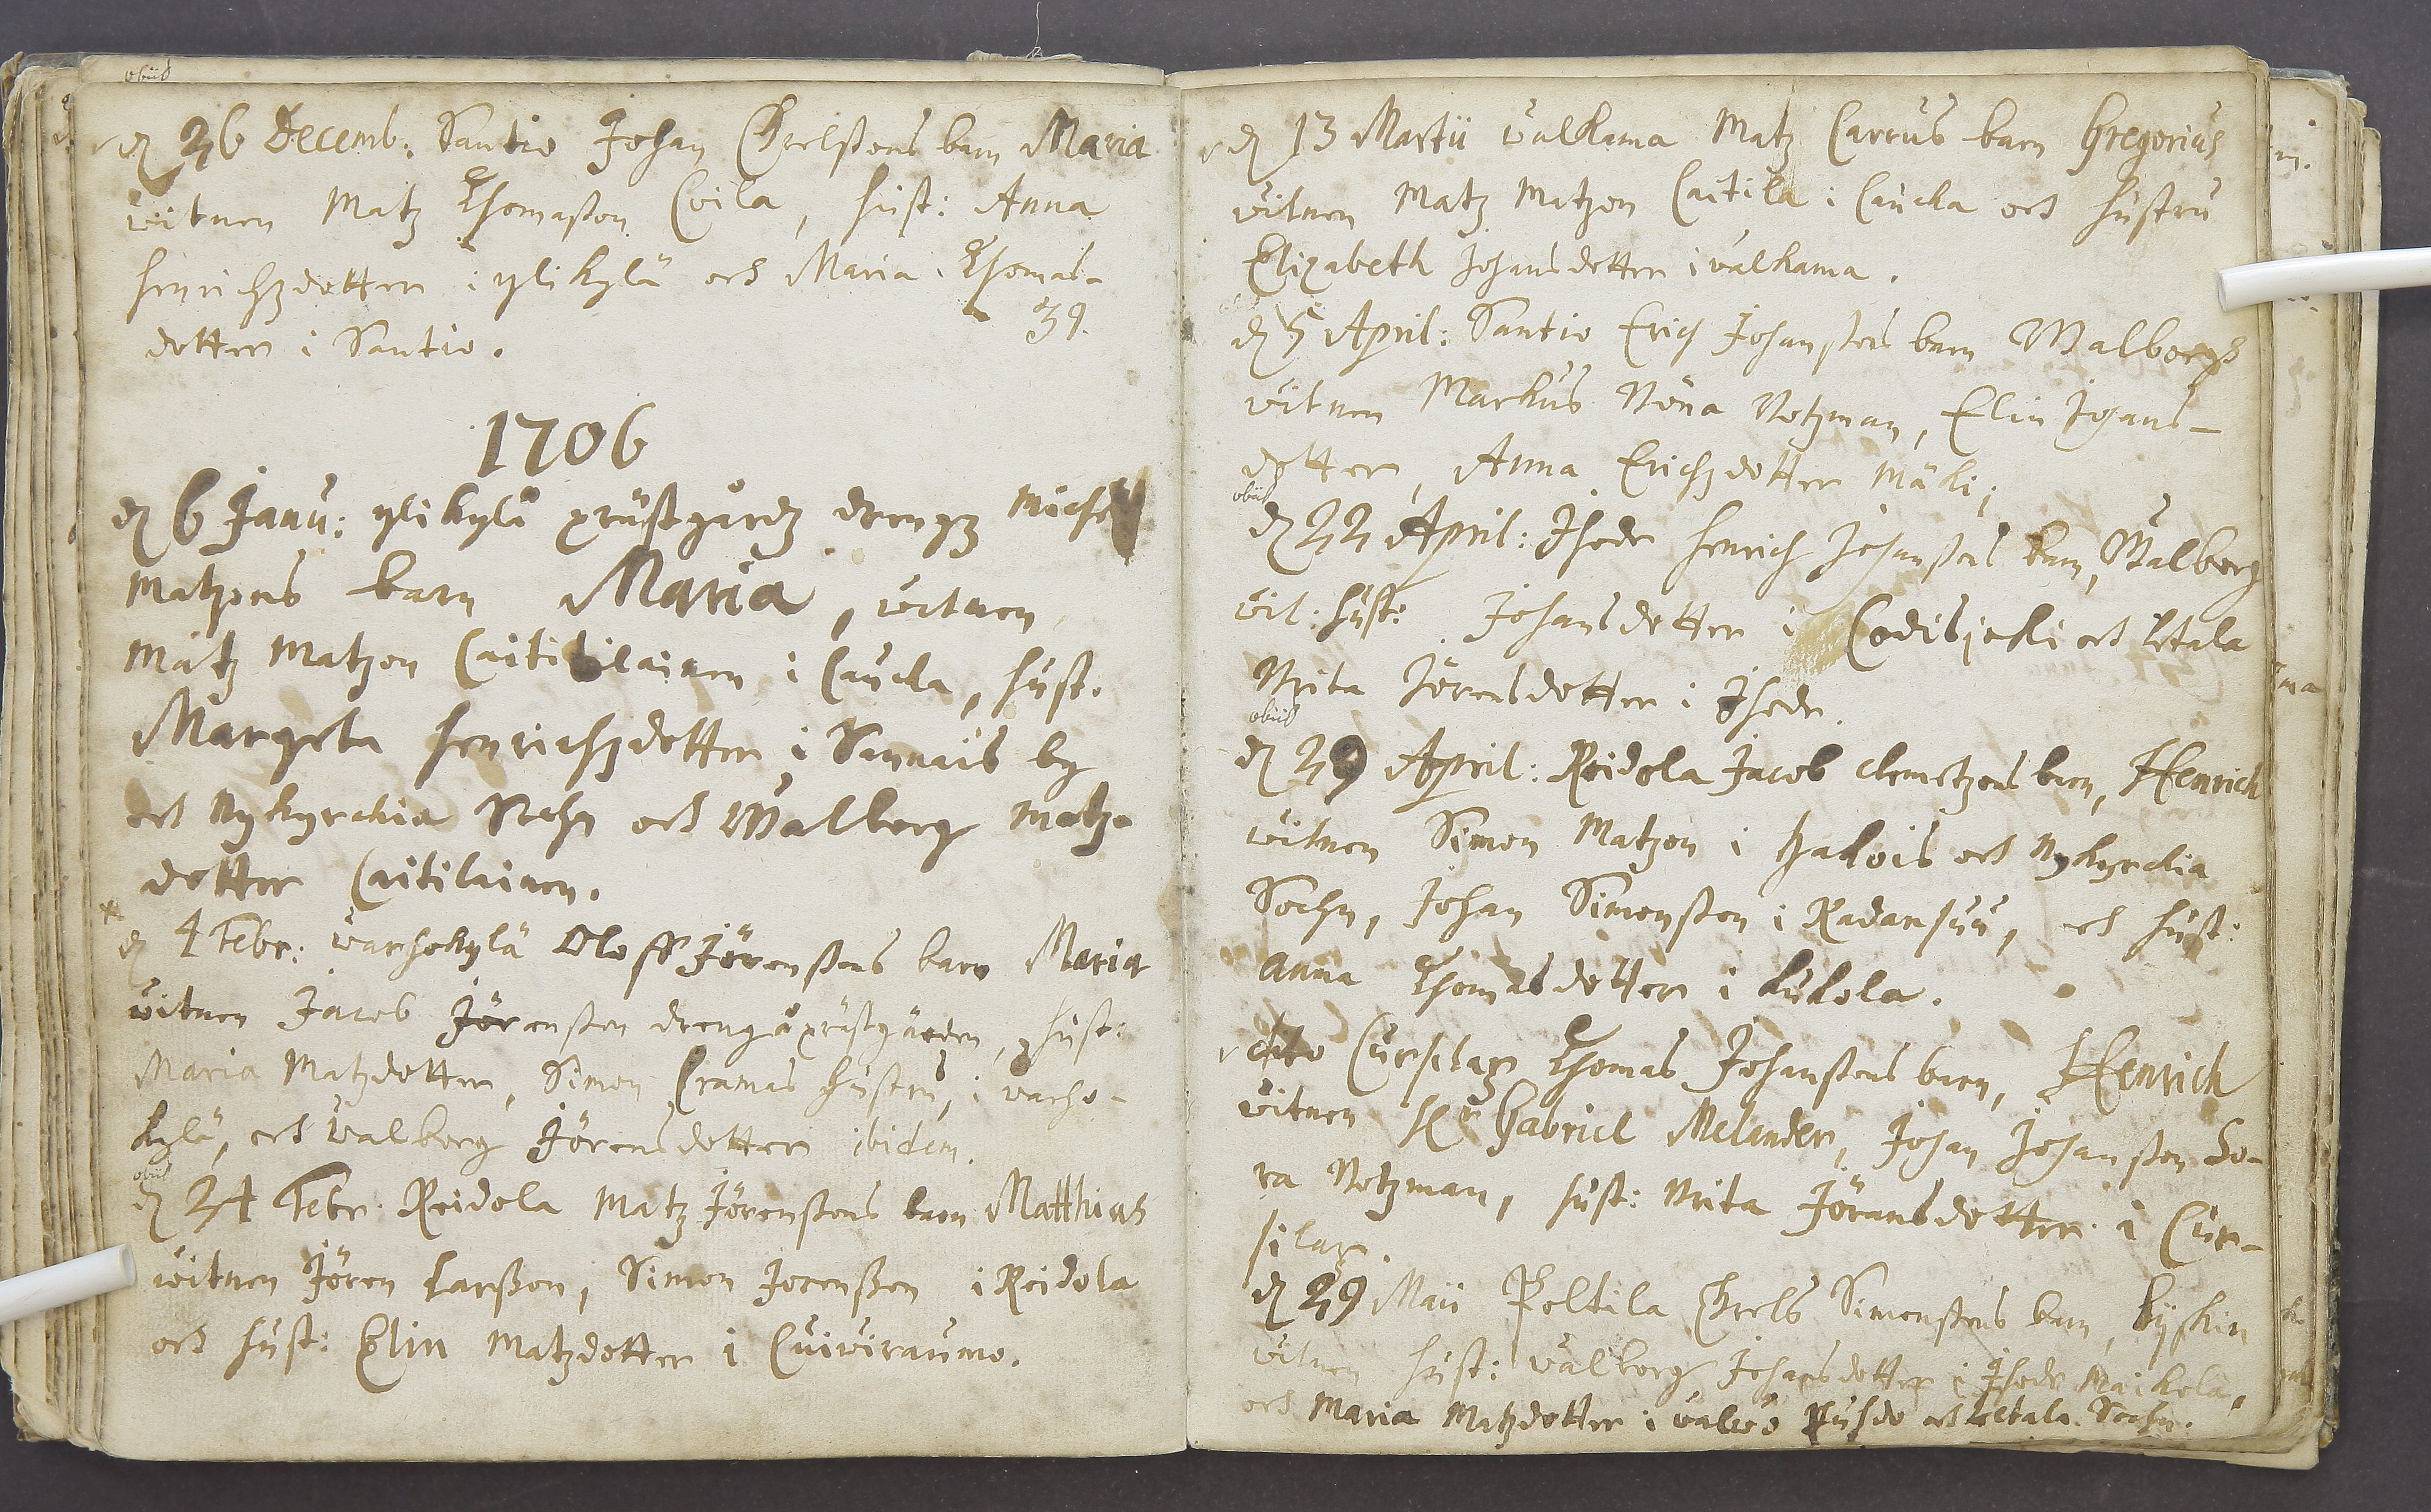 obiid
d 26 Decemb: Santio Johan Grelssons barn Maria
vitnen Matz Thomasson Coila, hust: Anna
Hinrichzdotter i ylikylä och Maria Thomas-
dotter i Santio.
39.
1706
d 6 Janu: ylikylä prästgårdz drengz Michel
Matzons barn Maria, vitnen
Matz Matzon Caititilainen i Caucka, hust.
Margeta Henrichzdotter i Sannais by
och Nykyrckia Sochn och Walborg Matz-
dotter Caitilainen.
d 4 Febr: Varhokylä Oloff Jörenssons barn Maria
vitnen Jacob Jörensson dreng å prästgården, hust:
Maria Matzdotter, Simon Cramas hustru, i varho-
kylä, och Valborg Jörensdotter ibidem.
obiid
d 24 Febr. Reidola Matz Jörenssons barn Matthias
vitnen Jören Larsson, Simon Jorensson i Reidola
och hust: Elin Matzdotter i Cuiviraumo.
d 13 Martii valkama Matz Carrus barn Gregorius
vitnen Matz Matzon Caitila i Caucka och hustru
Elizabeth Johansdotter i valkama.
d 5 April: Santio Erich Johanssons barn Walborg
vitnen Markus Nöna Notzman, Elin Johans-
dotter, Anna Erichzdotter Mäki;
obiid
d 22 April: Ihode Henrich Johanssons barn, Walborg
vit: hust: Johansdotter i Codisjoki och Letala
Brita Jörensdotter i Ihode.
obiid
d 29 April: Reidola Jacob Clemetzons barn, Henrich
vitnen Simon Matzon i Halois och Nykyrckia
Sochn, Johan Simonsson i Kadansuu, och hust:
Anna Thomasdotter i Kukola.
dito Cursilax Thomas Johanssons barn, Henrich
vitnen Hr Gabriel Melander, Johan Johansson So-
ra Notzman, hust: Brita Jöransdotter i Cur-
silax.
d 29 Maii Peltila Grels Simonssons barn, Kyskin
vitnen hust: Valborg Johansdotter i Ihode Maikola,
och Maria Matzdotter i valwo Puhdo och Letala Sochn.